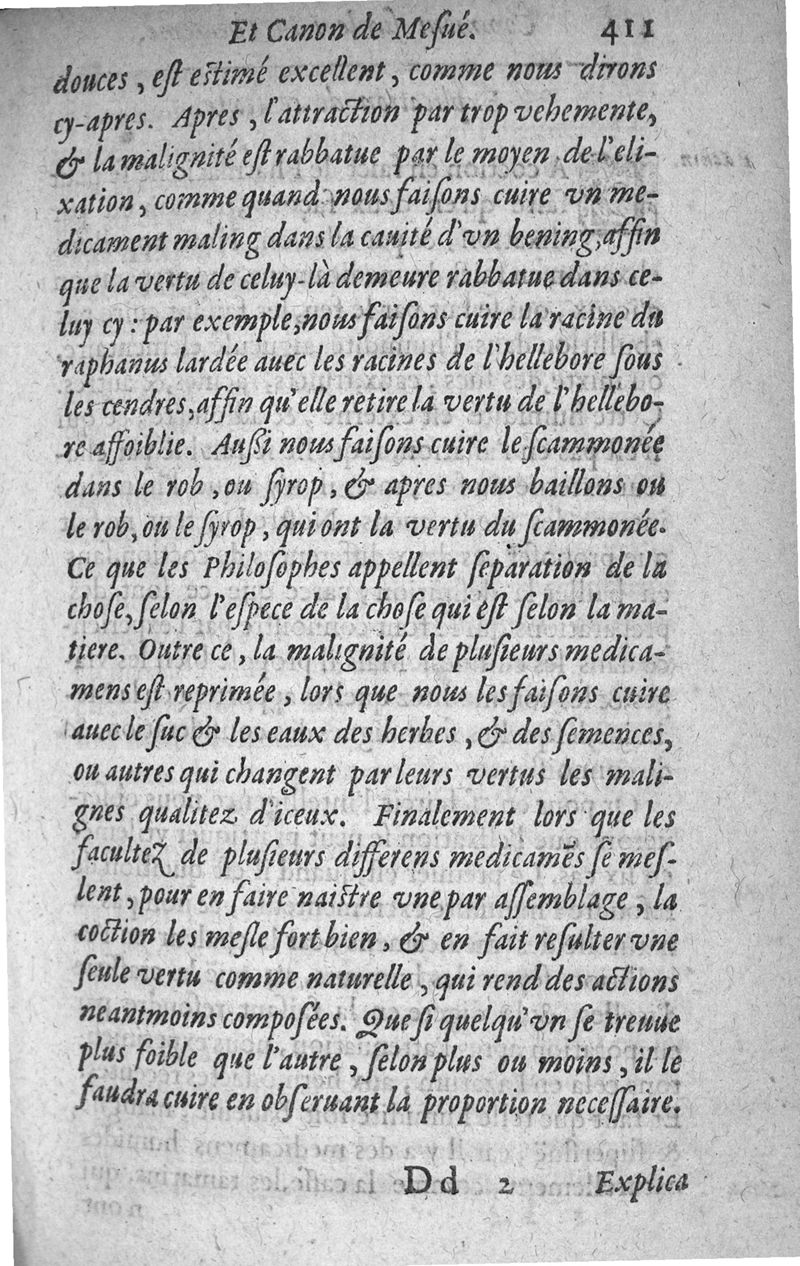 Et Canon de Meſué. 411
douces, eſt eſtimé excellent, comme nous dirons
cy-apres. Apres, l'attraction par trop vehemente,
& la malignité eſt rabbatue par le moyen de l'eli-
xation, comme quand nous faiſons cuire vn me-
dicament maling dans la cauité d'vn bening, affin
que la vertu de celuy-là demeure rabbatue dans ce-
luy cy : par exemple, nous faiſons cuire la racine du
raphanus lardée auec les racines de l'hellebore ſous
les cendres, affin qu'elle retire la vertu de l'hellebo-
re affoiblie. Auſſi nous faiſons cuire le ſcammonée
dans le rob, ou ſyrop, & apres nous baillons ou
le rob, ou le ſyrop, qui ont la vertu du ſcammonée.
Ce que les Philoſophes appellent ſeparation de la
choſe, ſelon l'eſpece de la choſe qui eſt ſelon la ma-
tiere. Outre ce, la malignité de pluſieurs medica-
mens eſt reprimée, lors que nous les faiſons cuire
auec le ſuc & les eaux des herbes, & des ſemences,
ou autres qui changent par leurs vertus les mali-
gnes qualitez d'iceux. Finalement lors que les
facultez de pluſieurs differens medicamēs ſe meſ-
lent, pour en faire naiſtre vne par aſſemblage, la
coction les meſle fort bien, & en fait reſulter vne
ſeule vertu comme naturelle, qui rend des actions
neantmoins compoſées. Que ſi quelqu'vn ſe treuue
plus foible que l'autre, ſelon plus ou moins, il le
faudra cuire en obſeruant la proportion neceſſaire.
Dd 2 Explica